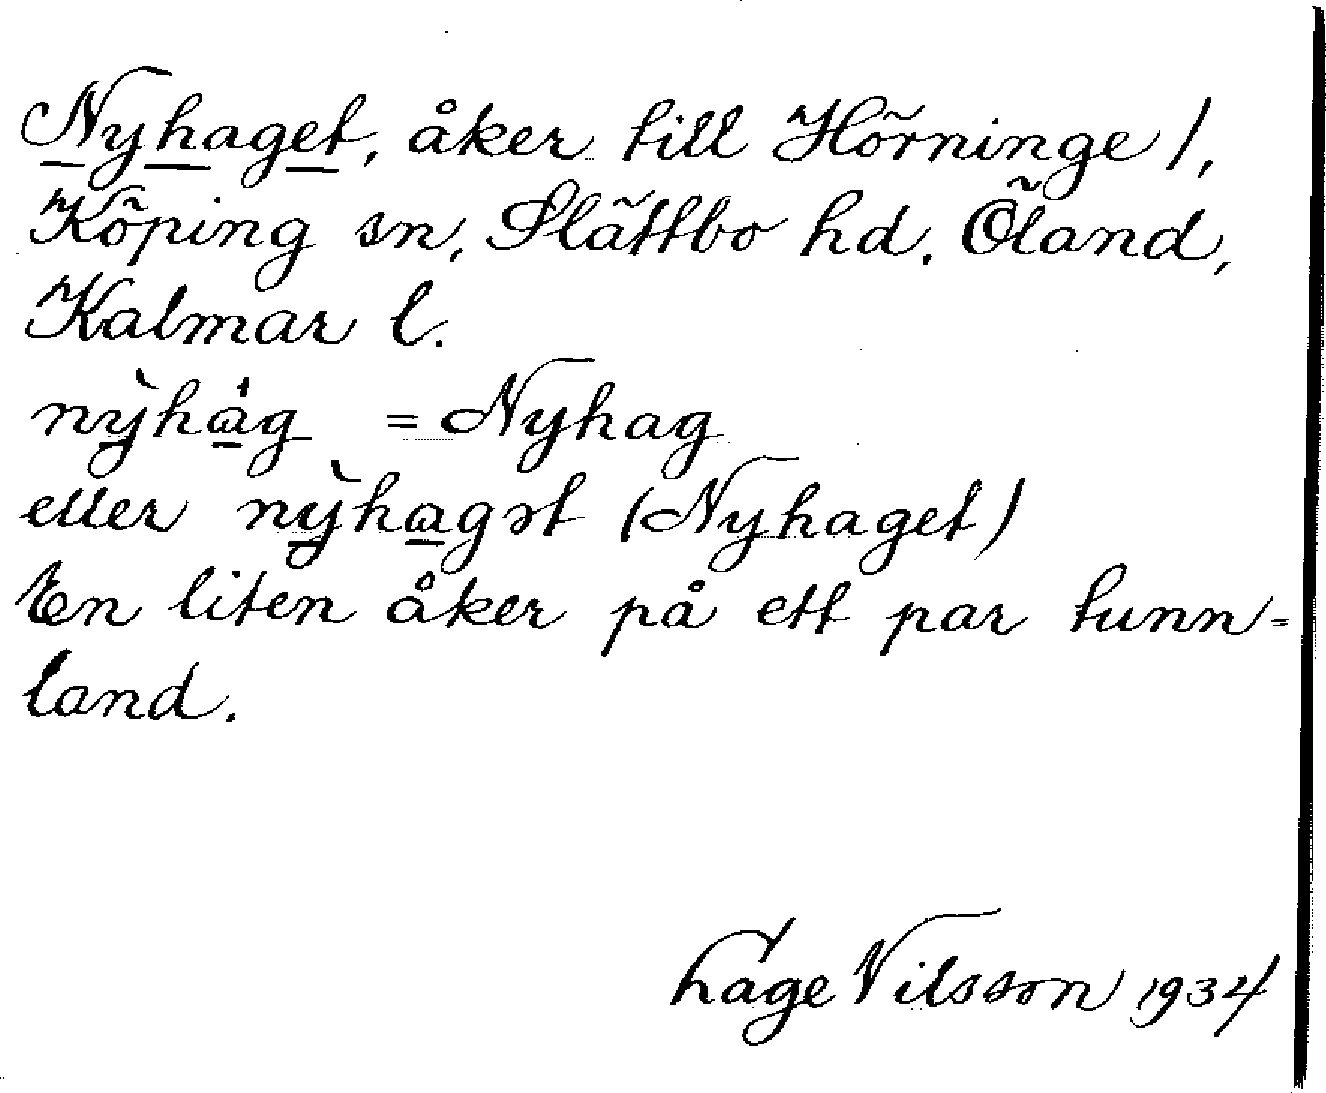 Nyhaget, åker till Hörninge 1,
Köping sn, Slättbo hd. Öland,
Kalmar l.
nỳhág = Nyhag
eller nỳhagət (Nyhaget)
En liten åker på ett par tunn=
land.
Låge Nilsson 1934